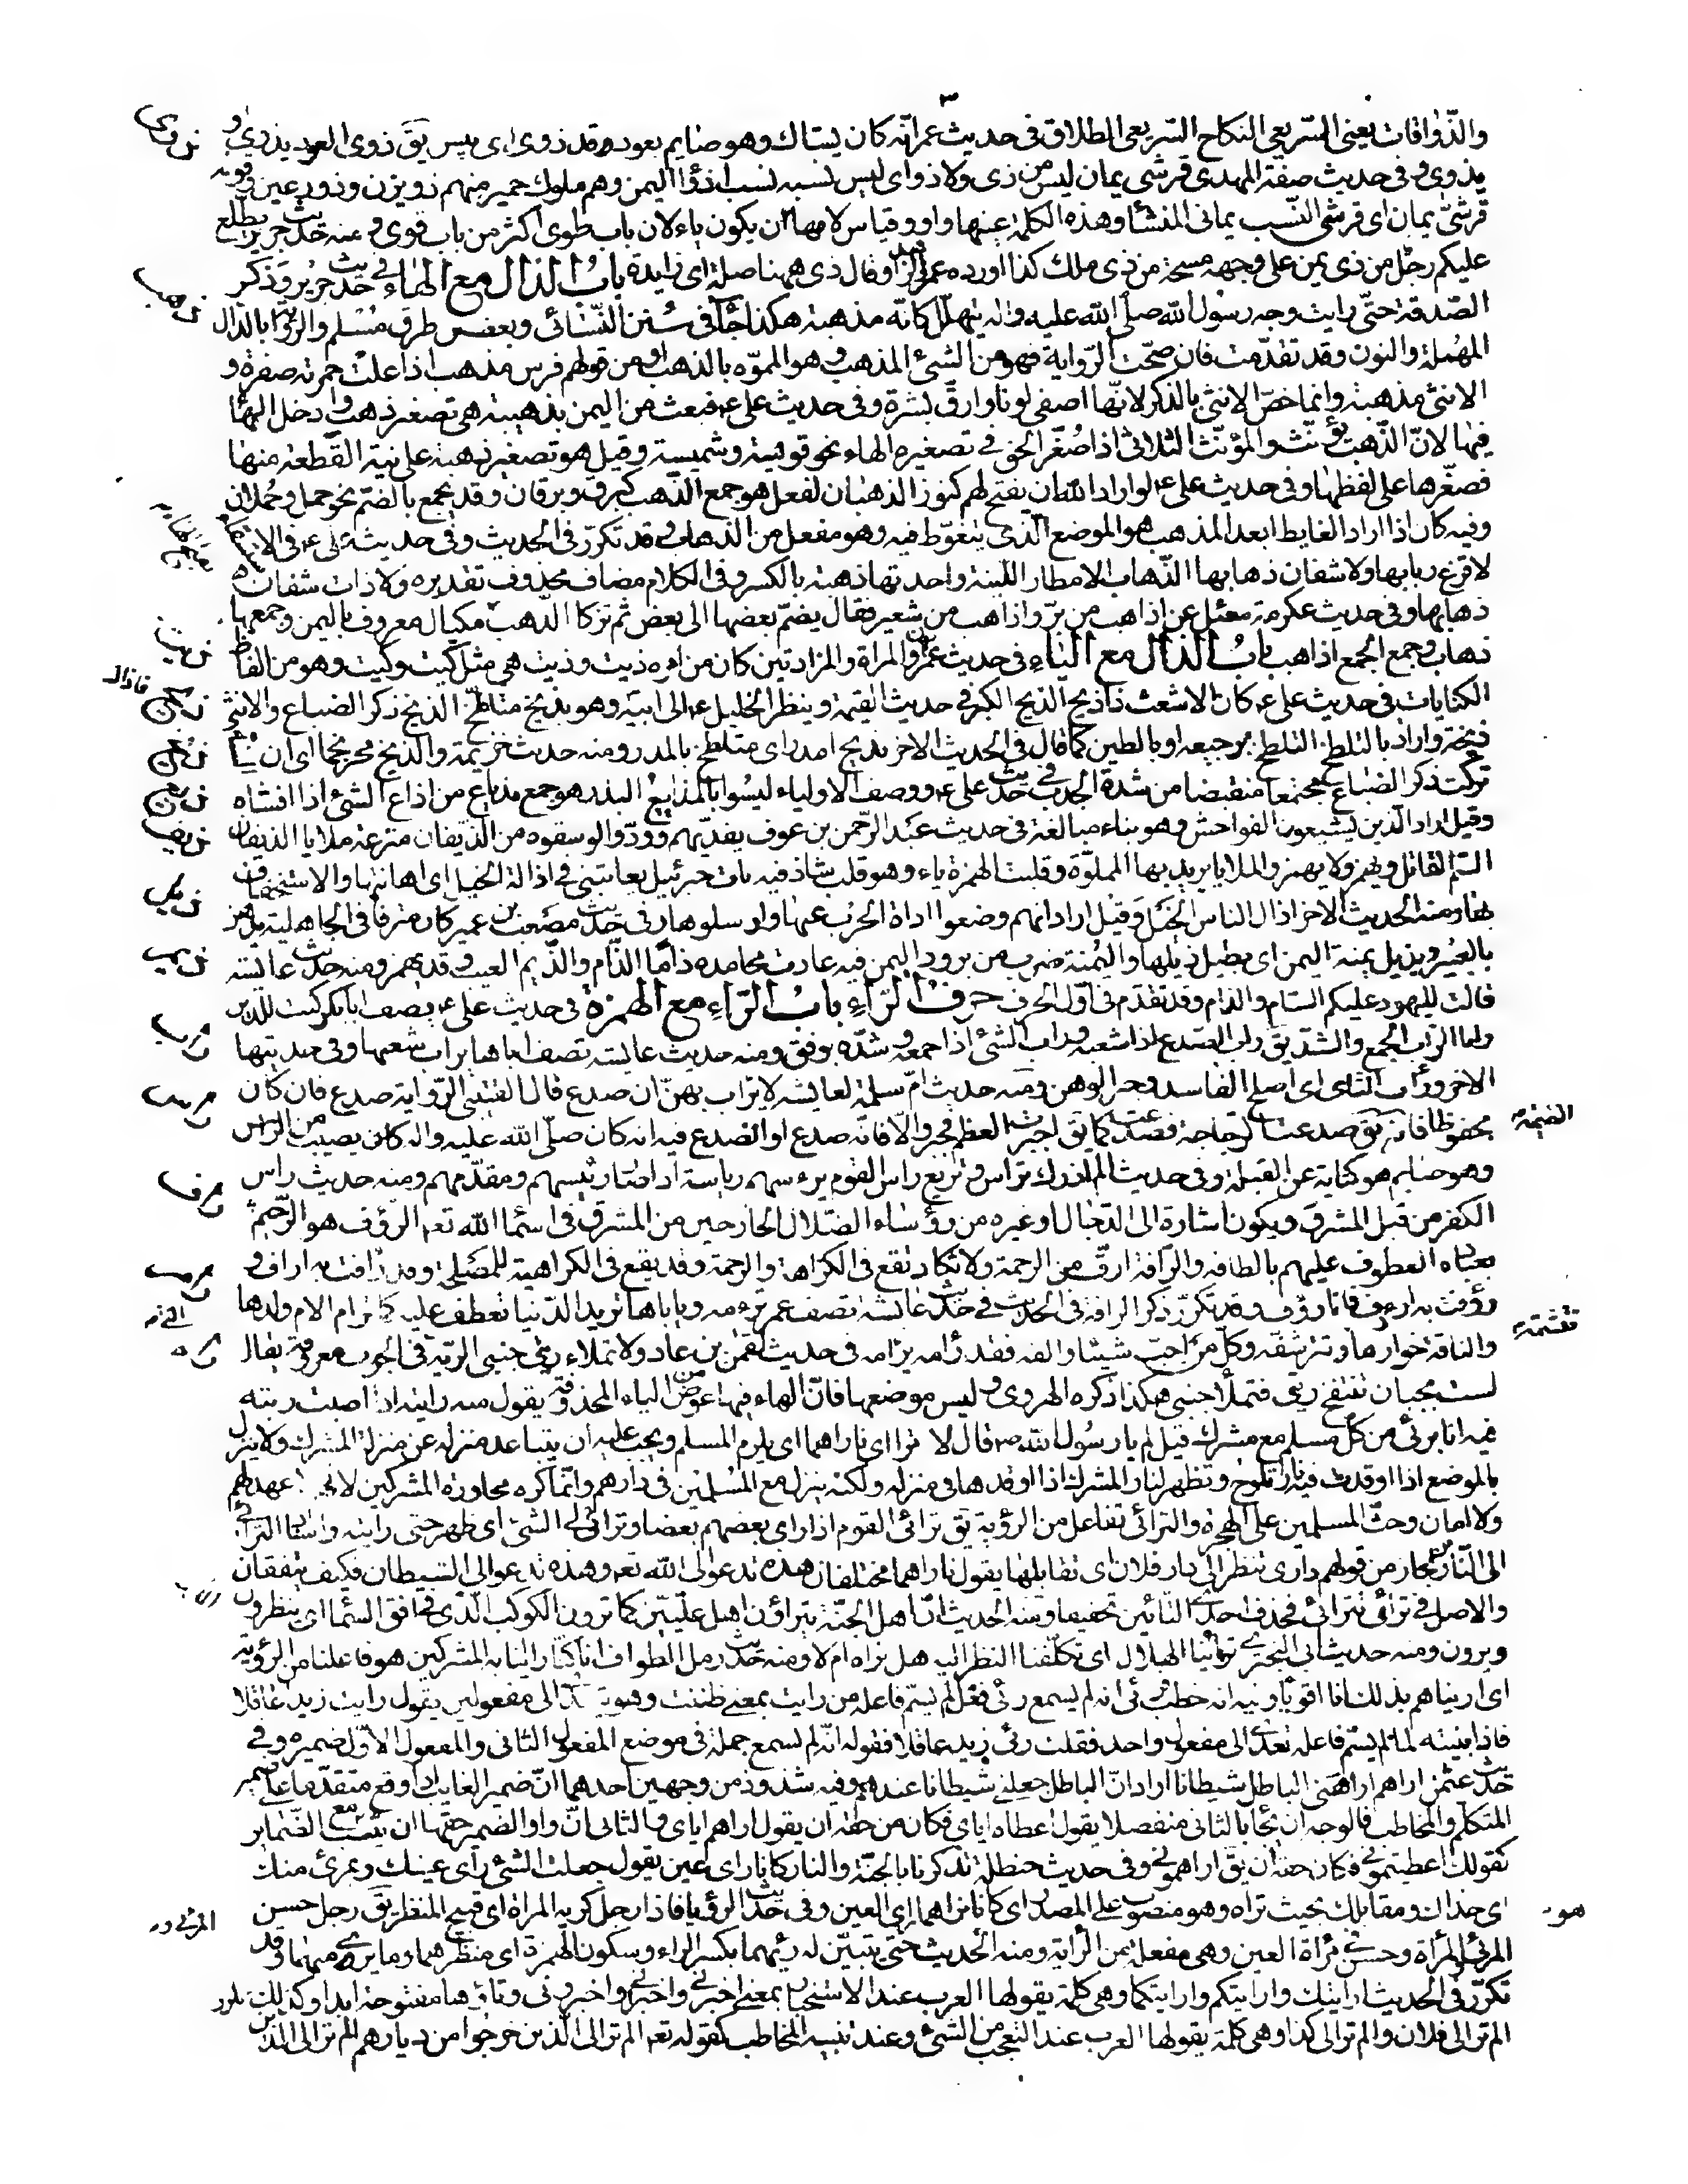 والذّواقات يعنى السّريعى النكاح السّريعى الطلاق فى حديث عمر انّه كان يستاك وهو صايم بعود قد ذوى اى يبس يقَ ذوى العود يذوى و
يذوى وفى حديث صفة المهدى قرشى يمان ليس من ذى ولا ذو اى ليس نسبه نسب اذؤا اليمن وهم ملوك حمير منهم ذو يزن وذو رعين وقوله
قرشىّ يمان اى قرشى النسب يمانى المنشأ وهذه الكلمة عينها واو وقياس لامها ان يكون ياء لان باب طوى اكثر من باب قوى و منه حديث جرير يطلع
عليكم رجل من ذى يمن على وجهه مسحة من ذى ملك كذا اورده ابو عمر الزاهد وقال ذى ههنا صلة اى زايدة باب الذال مع الهاء فى حديث جرير وذكر
الصّدقة حتّى رايت وجه رسول الله صلّى الله عليه واله يتهلّل كانّه مذهبة هكذا جآ فى سنن النّسائى وبعض طرق مسلم والرواية بالدال
المهملة والنون وقد تقدّمت فان صحّت الرّواية فهو من الشىء المذهب وهو المموّه بالذهب او من قولهم فرس مذهب اذا علت حمرته صفرة و
الانثى مذهبة وانما خصّ الانثى بالذكر لانّها اصفى لونا وارقّ بشرة وفى حديث على ع فبعث من اليمن بذهيبة هى تصغير ذهب وادخل الهآ
فيها لانّ الذّهب يؤنّث والمؤنّث الثلاثى اذا صُغّر الحق فى تصغيره الهاء نحو قويسة وشميسة وقيل هو تصغير ذهبة على نية القطعة منها
فصغّرها على لفظها وفى حديث على ع لو اراد الله ان يفتح لهم كنوز الذهبان لفعل هو جمع الذّهب كبرق وبرقان وقد يجمع بالضم نحو حمل وحملان
وفيه كان اذا اراد الغايط ابعد المذهب هو الموضع الّذى يتغوّط فيه وهو مفعل من الذهاب وقد تكرّر فى الحديث وفى حديث على ع فى الاستسقاء
لا قزع ربابها ولا شفان ذهابها الذّهاب الامطار اللينة واحدتها ذهبة بالكسر وفى الكلام مضاف محذوف تقديره ولا ذات شفان
ذهابها وفى حديث عكرمة سئل عن اذاهب من برّ واذاهب من شعير فقال يضمّ بعضها الى بعض ثم تزكا الذّهب مكيال معروف باليمن وجمعها
ذهاب وجمع الجمع اذاهب باب الذال مع الياء فى حديث عمران والمراة والمزادتين كان من امره ذيت وذيت هى مثل كيت وكيت وهو من الفاظ
الكنايات فى حديث على ع كان الاشعث ذا ذيخ الذيخ الكبر وفى حديث القيمة وينظر الخليل ع الى ابيه وهو بذيخ متلطّخ الذيخ ذكر الضباع والانثى
ذيخة واراد بالتلطخ التلطخ برجيعه او بالطين كما قال فى الحديث الاخر بذيخ امدر اى متلطخ بالمدر ومنه حديث خزيمة والذيخ محرنجما اى ان السنة
تركت ذكر الضباع مجتمعا منقبضا من شدة الجدب فى حديث على ع ووصف الاولياء ليسُوا بالمذاييع البذر هو جمع مذياع من اذاع الشىء اذا افشاه
وقيل اراد الّذين يشيعون الفواحش وهو بناء مبالغة فى حديث عبد الرّحمن بن عوف يفديهم وودّوا لو سقوه من الذيفان مترعة ملايا الذيفان
السّم القاتل ويهمز ولا يهمز والملايا يريد بها المملوّة وقلبت الهمزة ياء وهو قلب شاذ فيه بات جبرئيل يعاتبنى فى اذالة الخيل اى اهانتها والاستخفاف
بها ومنه الحديث الاخر اذال الناس الخيل وقيل اراد انهم وضعوا اداة الحرب عنها وارسلوها وفى حديث مصعب بن عمير كان مترفا فى الجاهلية يدّهن
بالعبير ويذيل يمنة اليمن اى يطيل ذيلها واليمنة ضرب من برود اليمن فيه عادت محامده ذاما الذّام والذّيم العيب وقد يهمز ومنه حديث عايشه
قالت لليهود عليكم السام والذام وقد تقدم فى اول الحرف حرف الرّاء باب الرّاء مع الهمزة فى حديث على ع يصف ابا بكر كنت للدين
رابا الرّاب الجمع والشدّ يقَ راب الصّدع اذا شعبه وراب الشىء اذا جمعه وشدّه برفق ومنه حديث عايشه تصف اباها يراب شعبها وفى حديثها
الاخر وراب الثاى اى اصلح الفاسد وجبر الوهن ومنه حديث امّ سلمة لعايشه لا يراب بهنّ ان صدع قال القتيبى الرّواية صدع فان كان
محفوظا فانه يقَ صدعت الزجاجة فصدعت كما يقَ جبرت العظم فجبر والّا فانه صدع او انصدع فيه انه كان صلّى الله عليه واله كان يصيب من الراس
وهو صايم هو كناية عن القبلة وفى حديث الم اذرك تراس وتربع راس القوم يرءسهم رياسة اذا صار رئيسهم ومقدّمهم ومنه حديث راس
الكفر من قبل المشرق ويكون اشارة الى الدّجال او غيره من رؤساء الضّلال الخارجين من المشرق فى اسمآ الله تعه الرؤف هو الرّحيم
بعباده العطوف عليهم بالطافه والرّافة ارقّ من الرحمة ولا تكاد تقع فى الكراهة والرحمة وقد يقع فى الكراهية للمصلحة وقد رافت به اراف و
رؤفت به ارءف فانا رؤف وقد تكرّر ذكر الرافة فى الحديث فى حديث عايشه تصف عمر ترءمه وياباها تريد الدّنيا تعطف عليه كما ترام الام ولدها
والناقة حوارها وترشقه وكلّ من احبّ شيئا والفه فقد رامه يرامه فى حديث لقمن بن عاد ولا تملاء رئتى جنبى الريّة فى الجوف معروفة يقال
لست بجبان تنتفخ رئتى فتملأ جنبى هكذا ذكره الهروى وليس موضعها فانّ الهاء فيها عوض من الياء المحذوفة يقول منه رايته اذا اصبت ريته
فيه انا برئ من كلّ مسلم مع مشرك قيل لم يا رسول الله ص قال لا ترا اى ناراهما اى يلزم المسلم ويجب عليه ان يتباعد منزله عن منزل المشرك ولا ينزل
بالموضع اذا اوقدت فيه ناره تلوح وتظهر لنار المشرك اذا اوقدها فى منزله ولكنه ينزل مع المسلمين فى دارهم وانّما كره مجاورة المشركين لانهم لا عهد لهم
ولا امان وحثّ المسلمين على الهجرة والترائى تفاعل من الرؤية يقَ ترائى القوم اذا راى بعضهم بعضا وترائى لى الشىء اى ظهر حتى رايته واسناد الترائى
الى النّار مجاز من قولهم دارى تنظر الى دار فلان اى تقابلها يقول ناراهما مختلفان هذه تدعو الى الله تعه وهذه تدعو الى الشيطان فكيف يتفقان
والاصل فى ترائى تترائى فحذف احدى التائين تخفيفا ومنه الحديث انّ اهل الجنّة يتراؤن اهل علّيّين كما ترون الكوكب الّذى فى افق السّمآ اى ينظرون
ويرون ومنه حديث ابى البخترى ترائينا الهلال اى تكلّفنا النظر اليه هل نراه ام لا ومنه حديث رمل الطواف انما كنّا رائينا به المشركين هو فاعلنا من الرؤية
اى اريناهم بذلك انا اقويآ وفيه انه خطب فرئى انه لم يسمع رئى فعل لم يسمّ فاعله من رايت بمعنى ظننت وهو يتعدّى الى مفعولين يقول رايت زيدا عاقلا
فاذا بنيته لما لم يسمّ فاعله تعدى الى مفعول واحد فقلت رئى زيد عاقلا فقوله انّه لم يسمع جملة فى موضع المفعول الثانى والمفعول الاوّل ضميره وفى
حديث عثمن اراهم اراهمنى الباطل شيطانا اراد انّ الباطل جعلنى شيطانا عندهم وفيه شذوذ من وجهين احدهما انّ ضمير الغايب اذا وقع متقدّما على ضمير
المتكلّم والمخاطب فالوجه ان يجآ بالثانى منفصلا يقول اعطاه اياى فكان من حقه ان يقول اراهم اياى والثانى انّ واو الضمير حقّها ان يثبت مع الضّماير
كقولك اعطيتمونى فكان حقه ان يقَ اراهمونى وفى حديث حنظلة تذكرنا بالجنّة والنار كانا راى عين يقول جعلت الشىء راى عينك وبمرئ منك
اى حذاك ومقابلك بحيث تراه وهو منصوب على المصدر اى كانا نراهما راى العين وفى حديث الرؤيا فاذا رجل كريه المراة اى قبيح المنظر يقَ رجل حسن
المرئى والمرأة وحسن فى مرأة العين وهى مفعلة من الرّاية ومنه الحديث حتى يتبيّن له رئيهما بكسر الراء وسكون الهمزة اى منظرهما وما يرى منهما وقد
تكرّر فى الحديث ارايتك وارايتكم وارايتكما وهى كلمة يقولها العرب عند الاستخبار بمعنى اخبرنى واخبرانى واخبرونى وتاؤها مفتوحة ابدا وكذلك تكرر
الم تر الى فلان والم تر الى كذا وهى كلمة يقولها العرب عند التعجّب من الشىء وعند تنبيه المخاطب كقوله تعه الم تر الى الّذين خرجوا من ديارهم الم تر الى الّذين